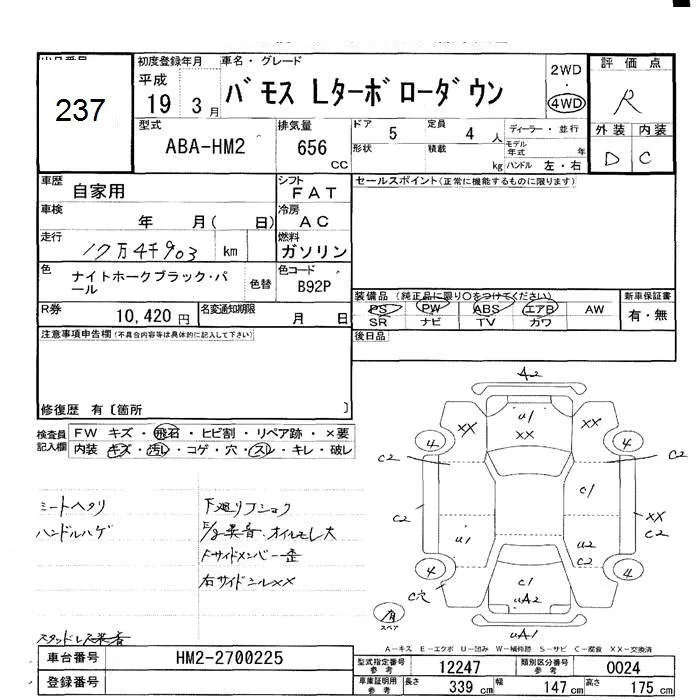 237
初度登録年月
平成 19 3月
車名・グレード
バモス Lターボ ローダウン
2WD
・
4WD
評価点
R
外装 内装
D C
型式
ABA-HM2
排気量
656 CC
ドア 5
定員 4 人
形状
積載 kg
ディーラー・並行
モデル年式 年
ハンドル 左・右
車歴
自家用
シフト
FAT
セールスポイント(正常に機能するものに限ります)
車検
年 月( 日)
冷房
AC
走行
17万4千903 km
燃料
ガソリン
色
ナイトホークブラック・パール
色替
色コード
B92P
装備品 (純正品に限り○をつけてください)
PS PW ABS エアB AW
SR ナビ TV カワ
新車保証書
有・無
R券
10,420 円
名変通知期限
月 日
後日品
注意事項申告欄(不具合内容等は具体的に記入して下さい)
修復歴 有〔箇所 〕
検査員記入欄
FW キズ・飛石・ヒビ割・リペア跡・×要
内装 キズ・汚レ・コゲ・穴・スレ・キレ・破レ
シートヘタリ
ハンドルハゲ
下廻リフショク
E/g異音・オイルモレ大
Fサイドメンバー歪
右サイドシルXX
A2
XX
U1
XX
XX
4
4
C2
C2
C1
C2
XX
C2
U1
U2
C2
4
4
C穴
C1
UA2
UA1
有
スペア
A-キス E-エクボ U-凹み W-補修跡 S-サビ C-腐食 XX-交換済
車台番号
HM2-2700225
登録番号
型式指定番号 参考
12247
類別区分番号 参考
0024
車庫証明用 参考
長さ 339 cm
幅 147 cm
高さ 175 cm